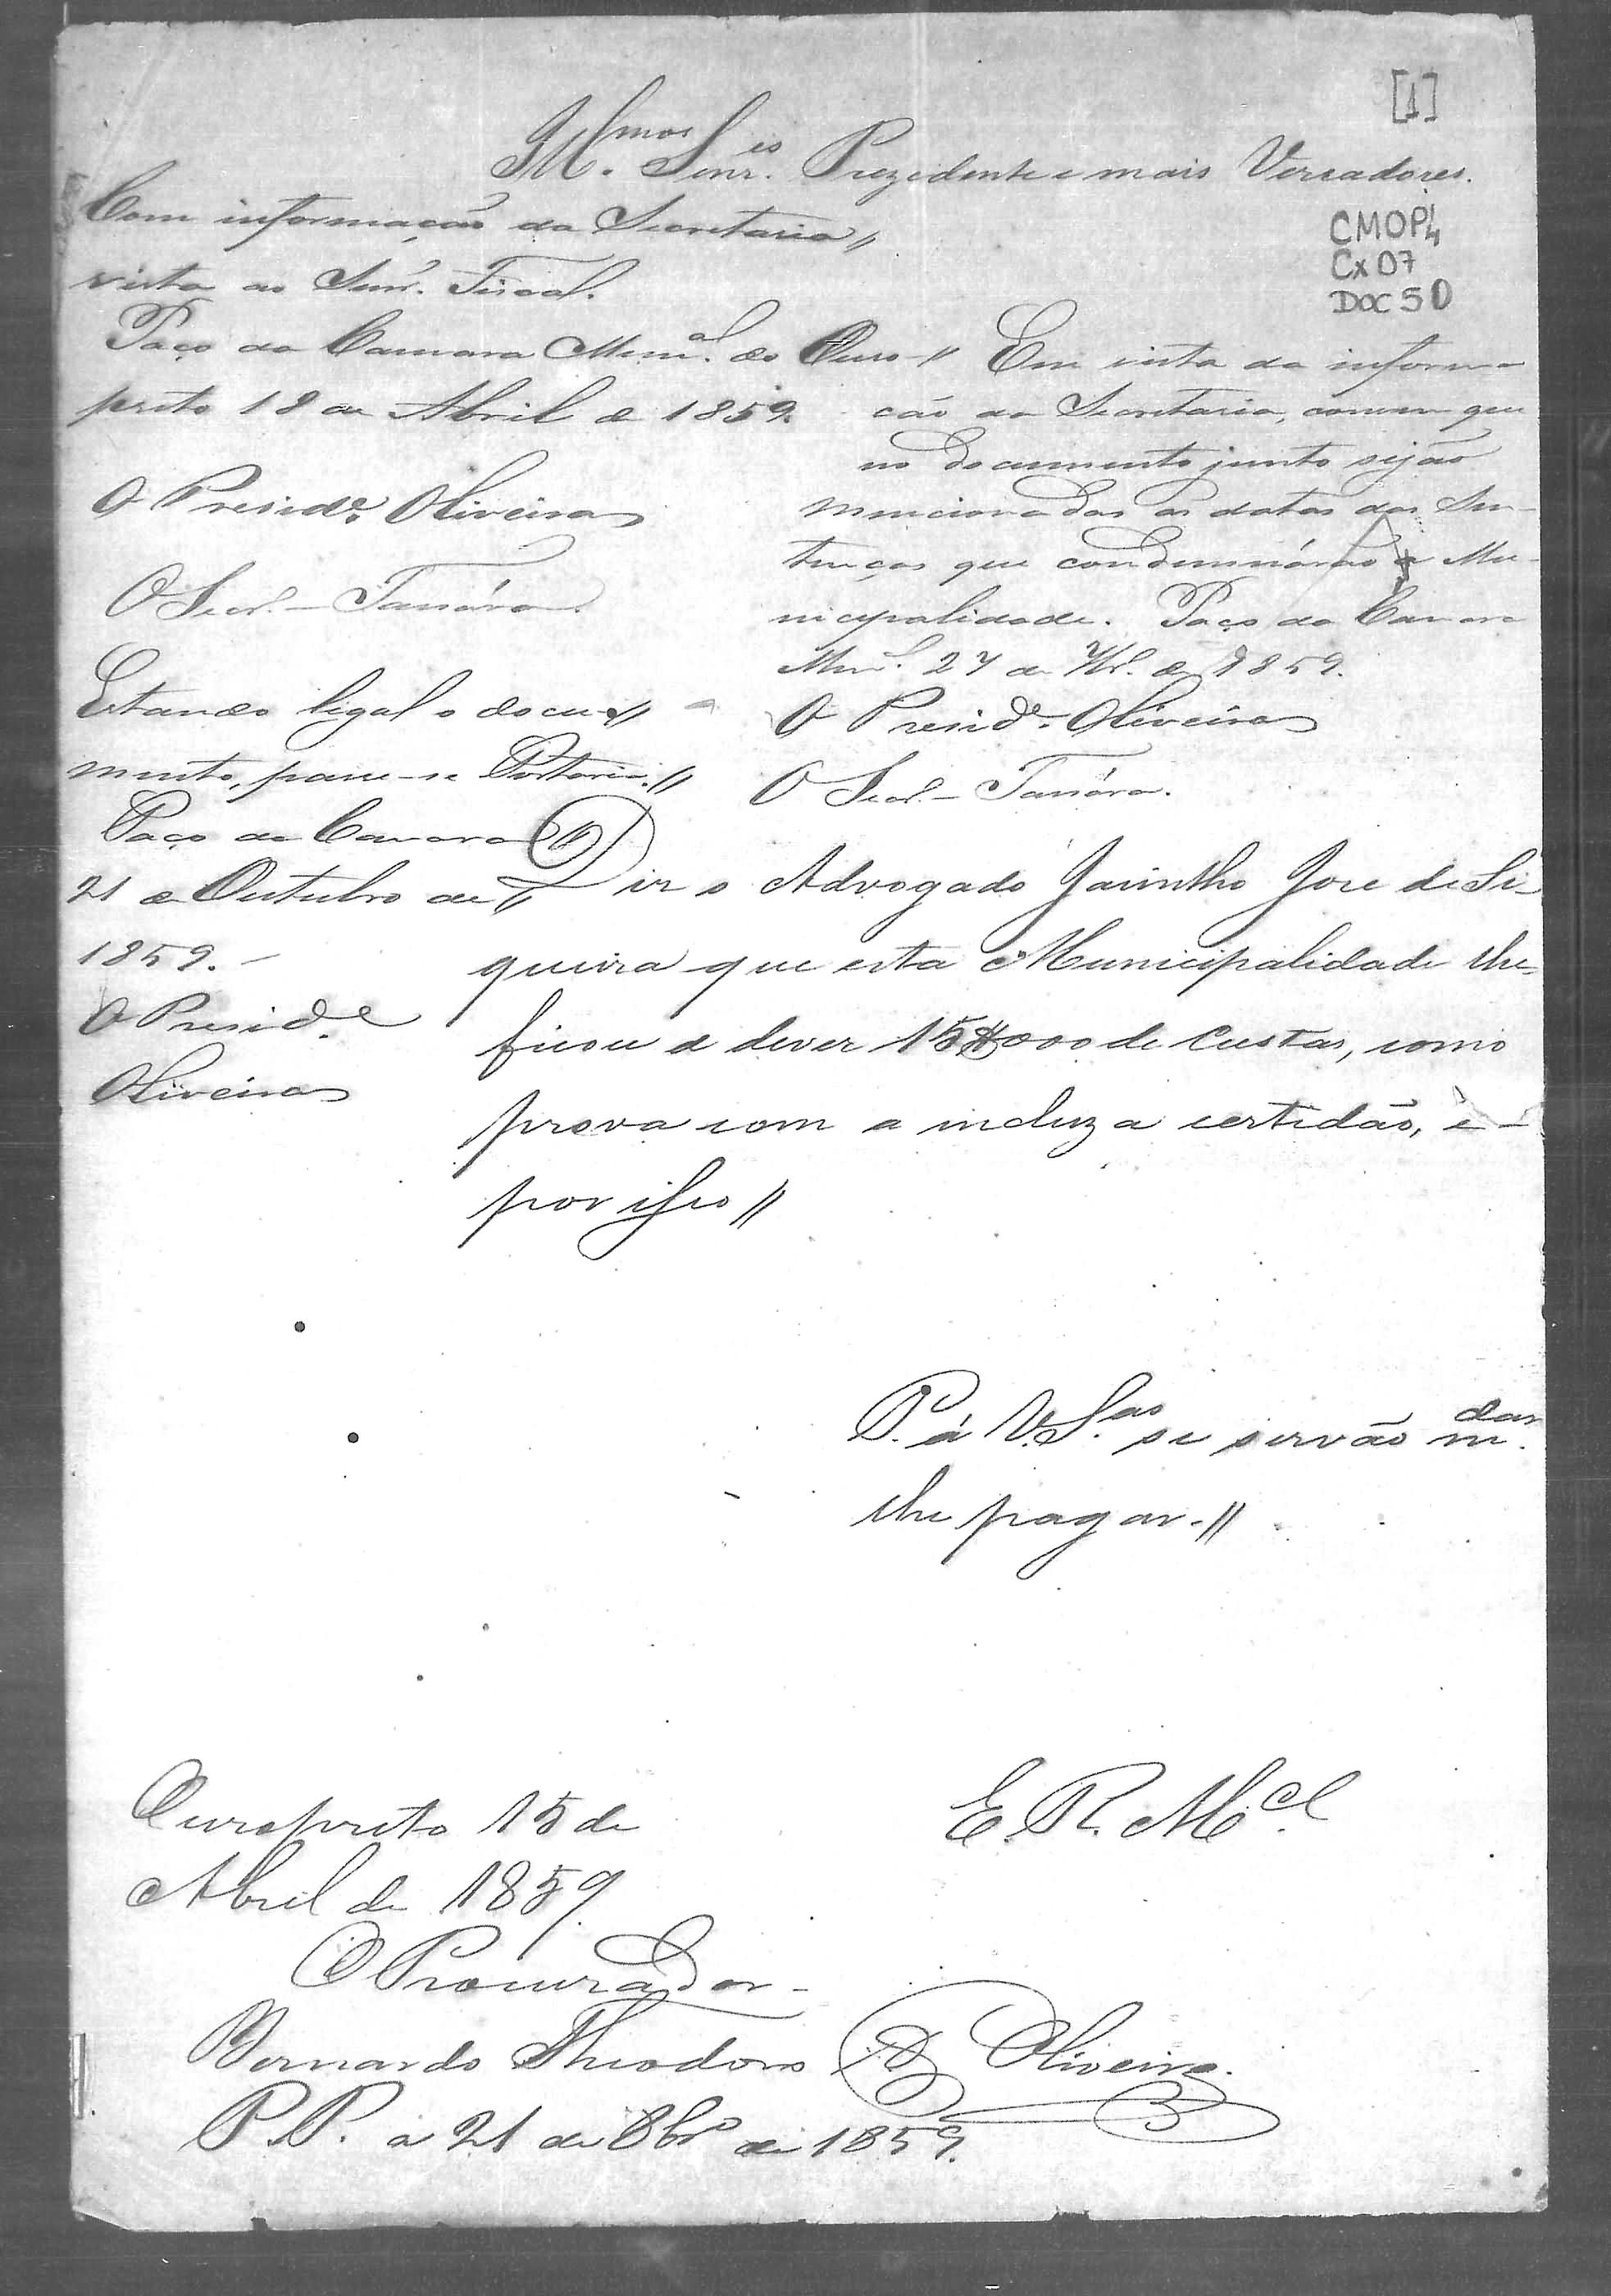 [1]
Ill.mos Senr.es Prezidente e mais Vereadores.
CMOP
Cx 07
DOC 50
Com informação da Secretaria //
vista ao Senr. Fiscal.
Paço da Camara Mun.al do Ouro //
preto 18 de Abril de 1859.
O Presid.e Oliveira
O Secr.
Em vista da informa-
ção da Secretaria, convem que
no documento junto sejão
mencionadas as datas das Sen-
tenças que condemnárão a Mu-
nicipalidade. Paço da Camara
Mun.l 27 de de 1859.
O Presid.e Oliveira
O Secr.
Estando legal o docu //
mento, passe-se Portaria. //
Paço da Camara
21 de Outubro de //
1859. -
O Presid.e
Oliveira
Diz o Advogado Jacintho Joze de Si-
queira que esta Municipalidade lhe
ficou a dever 15$000 de Custas, como
prova com a incluza certidão, e -
por isso //
P. á V. S.as se servão m.dar
lhe pagar. //
E. R. M.cê
Ouropreto 15 de
Abril de 1859.
O Procurador -
Bernardo Theodoro de Oliveira.
P. P. a 21 de 8br.o de 1859.